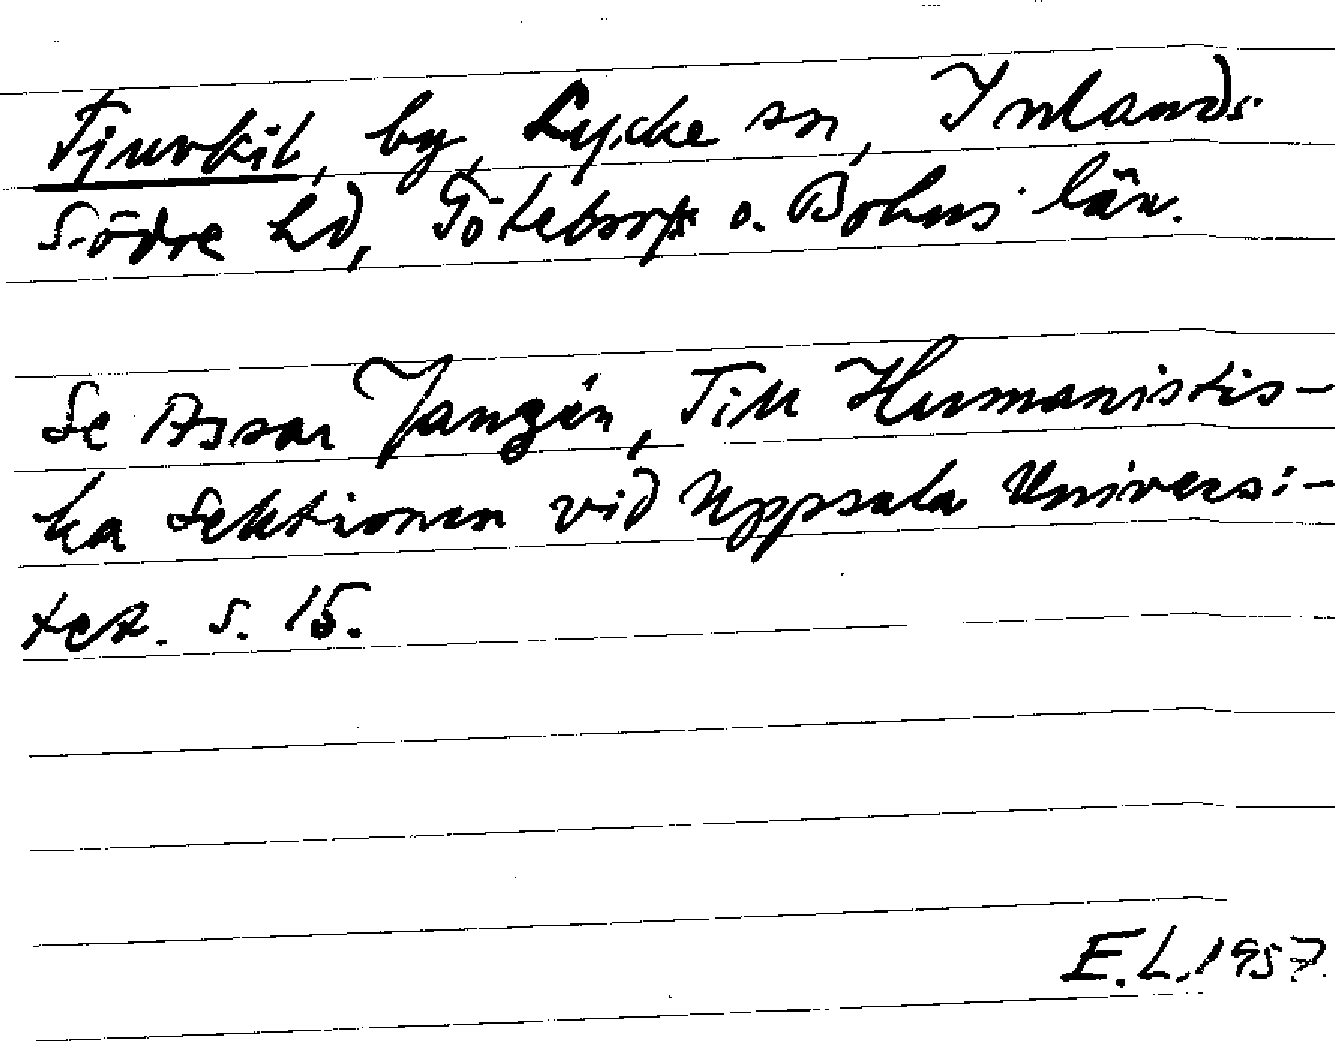 Tjurkil, by, Lycke sn, Inlands
Södre hd, Göteborgs o. Bohus län.
Se Assar Janzén, Till Humanistis-
ka Sektionen vid Uppsala Universi-
tet. s. 15.
E.L. 1957.